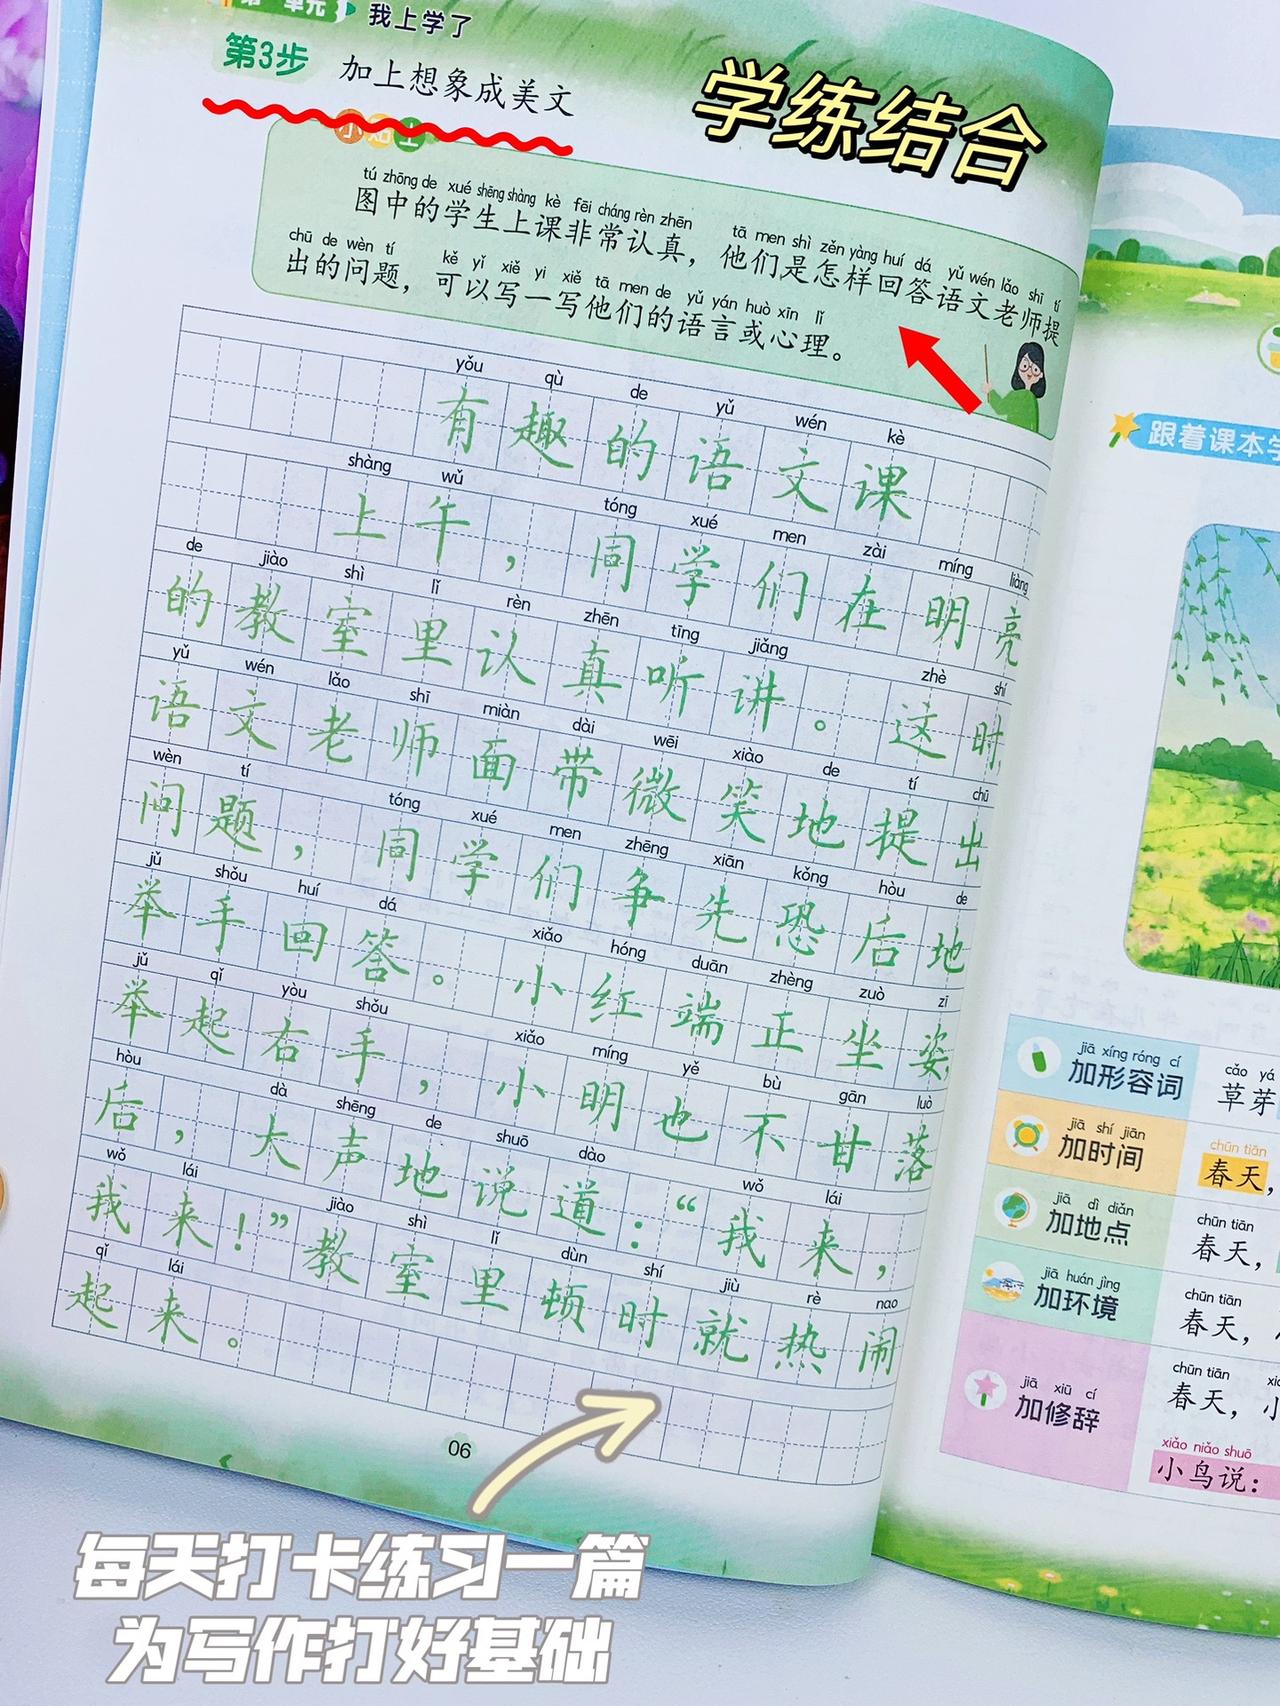 第一单元 我上学了
第3步 加上想象成美文
学练结合
小贴士
tú zhōng de xué shēng shàng kè fēi cháng rèn zhēn tā men shì zěn yàng huí dá yǔ wén lǎo shī tí
图中的学生上课非常认真，他们是怎样回答语文老师提
chū de wèn tí kě yǐ xiě yi xiě tā men de yǔ yán huò xīn lǐ
出的问题，可以写一写他们的语言或心理。
yǒu qù de yǔ wén kè
有趣的语文课
shàng wǔ tóng xué men zài míng liàng
上午，同学们在明亮
de jiào shì lǐ rèn zhēn tīng jiǎng zhè shí
的教室里认真听讲。这时
yǔ wén lǎo shī miàn dài wēi xiào de tí chū
语文老师面带微笑地提出
wèn tí tóng xué men zhēng xiān kǒng hòu de
问题，同学们争先恐后地
jǔ shǒu huí dá xiǎo hóng duān zhèng zuò zī
举手回答。小红端正坐姿
jǔ qǐ yòu shǒu xiǎo míng yě bù gān luò
举起右手，小明也不甘落
hòu dà shēng de shuō dào wǒ lái
后，大声地说道：“我来，
wǒ lái jiào shì lǐ dùn shí jiù rè nao
我来！”教室里顿时就热闹
qǐ lái
起来。
06
每天打卡练习一篇
为写作打好基础
跟着课本学
jiā xíng róng cí cǎo yá
加形容词 草芽
jiā shí jiān chūn tiān
加时间 春天，
jiā dì diǎn chūn tiān
加地点 春天，
jiā huán jìng chūn tiān
加环境 春天，
jiā xiū cí chūn tiān
加修辞 春天，小
xiǎo niǎo shuō
小鸟说：